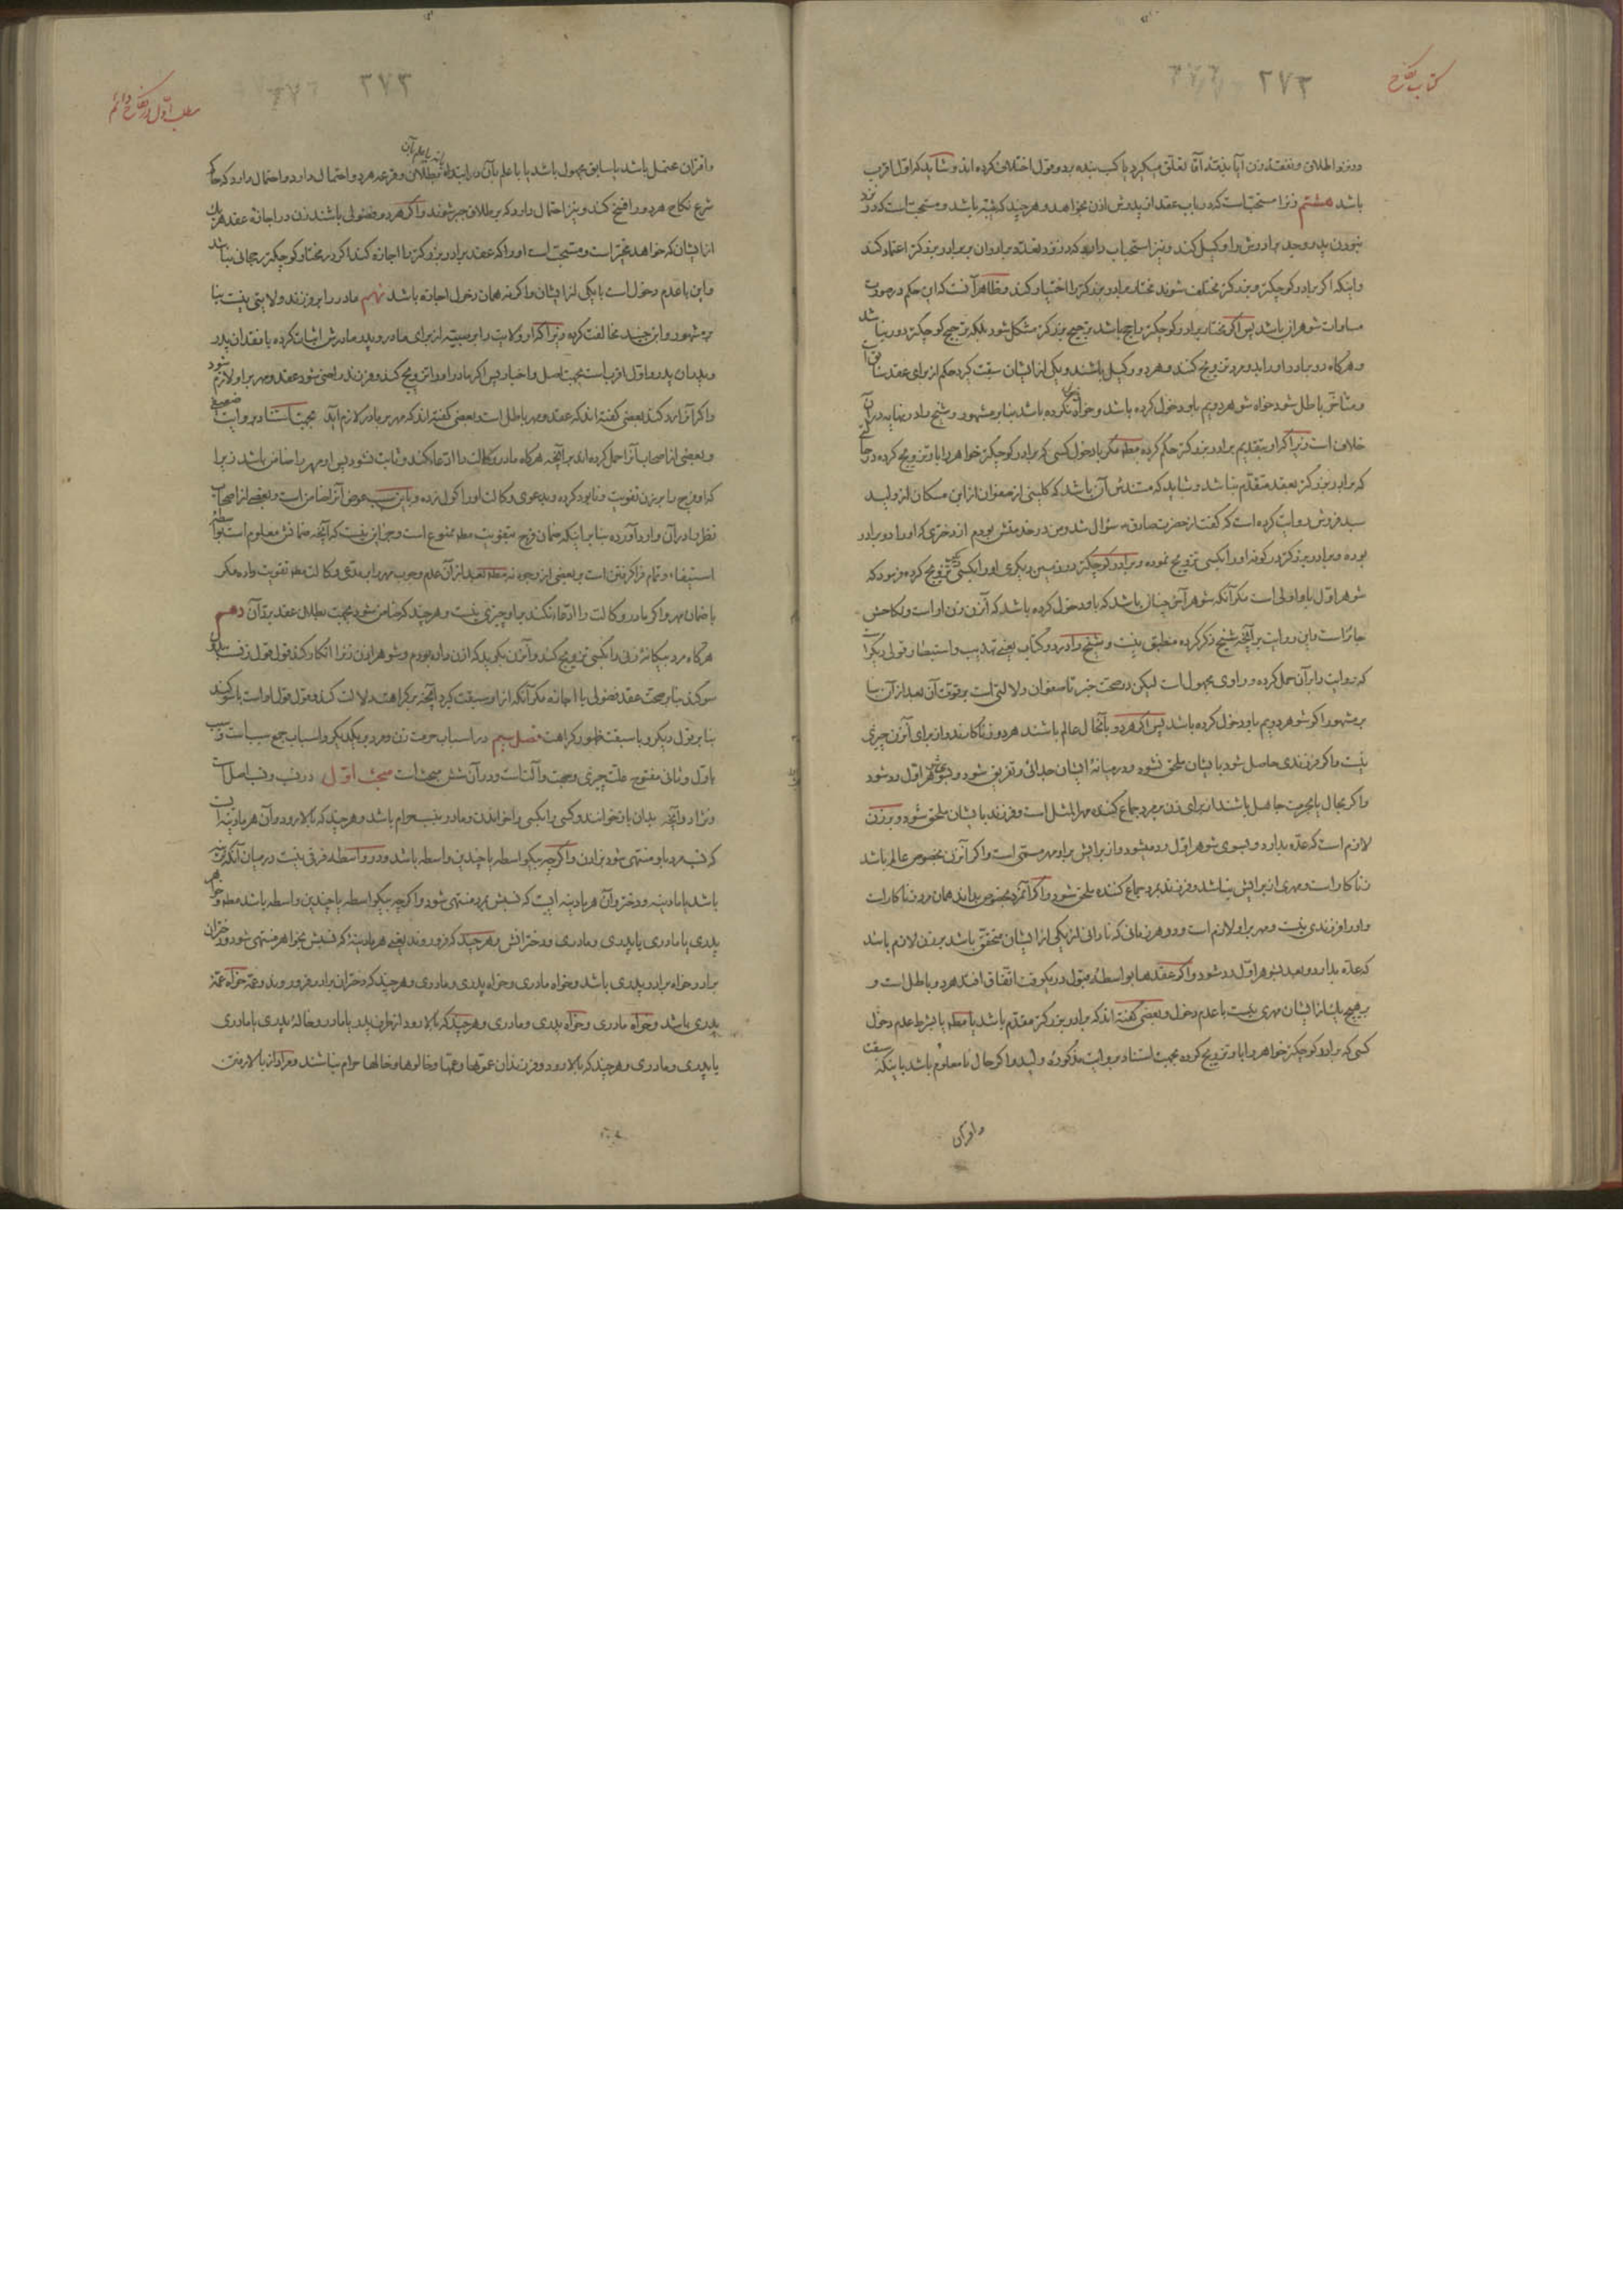 کتاب نکاح
۲۷۲
ودر نزد اطلاق ونفقه زن آیا بذمه آقا تعلق میگیرد یا کسب بنده بدو قول اختلاف کرده اند وشاید که اول اقرب
باشد هشتم زنرا مستحب است که در باب عقد از پدرش اذن بخواهد وهر چند که ثیبه باشد ومستحب است که در نزد
نبودن پدر وجد برادرش را وکیل کند ونیز استحباب دارد که در نزد تعدد برادران بر برادر بزرکتر اعتماد کند
واینکه اکر برادر کوچکتر وبزرکتر مختلف شوند مختار برادر بزرکتر را اختیار کند وظاهرا آنست که این حکم در صورت
مساوات شوهران باشد پس اکر مختار برادر کوچکتر راجح باشد ترجیح بزرکتر مشکل شود بلکه ترجیح کوچکتر دور نباشد
وهرکاه دو برادر او را بدو مرد تزویج کنند وهر دو وکیل باشند ویکی از ایشان سبقت کیرد حکم از برای عقد سابق است
ومتأخر باطل شود خواه شوهر دویم باو دخول کرده باشد وخواه دخول نکرده باشد بنا بر مشهور وشیخ را در نهایه در آن
خلاف است زیرا که او بتقدیم برادر بزرکتر حکم کرده مط مکر با دخول کسی که برادر کوچکتر خواهر را باو تزویج کرده در حالتی
که برادر بزرکتر بعقد متقدم نباشد وشاید که مستندش آن باشد که کلینی از صفوان از ابن مسکان از ولید
بیاع اسفاط روایت کرده است که کفت از حضرت صادق ع سؤال شد ومن در خدمتش بودم از دختری که او را دو برادر
بوده وبرادر بزرکتر در کوفه او را بکسی تزویج نموده وبرادر کوچکتر در زمین دیکری او را بکسی تزویج کرده فرمود که
شوهر اول باو اولی است مکر آنکه شوهر آخر چنان باشد که باو دخول کرده باشد که آنزن زن او است ونکاحش
جائز است واین روایت بر آنچه شیخ ذکر کرده منطبق نیست وشیخ را در دو کتاب یعنی تهذیب واستبصار قولی دیکر است
که روایت را بر آن حمل کرده وراوی مجهول است لیکن در صحت خبر تا صفوان دلالتی است بر قوت آن بعد از آن بنا
بر مشهور اکر شوهر دویم باو دخول کرده باشد پس اکر هر دو بآنحال عالم باشند هر دو زناکارند واز برای آنزن چیزی
نیست واکر فرزندی حاصل شود بایشان ملحق نشود ودر میانهٔ ایشان جدائی وتفریق شود وبشوهر اول رد شود
واکر بحال یا بحرمت جاهل باشند از برای زن بر مرد جماع کننده مهر المثل است وفرزند بایشان ملحق شود وبر زن
لازم است که عده بدارد وبسوی شوهر اول رد میشود واز برایش بر او مهر مسمی است واکر آنزن بخصوص عالم باشد
زناکار است ومهری از برایش نباشد وفرزند بمرد جماع کننده ملحق شود واکر آنمرد بخصوص بداند همان مرد زناکار است
واو را فرزندی نیست ومهر بر او لازم است ودر هر زمانی که نادانی از یکی از ایشان متحقق باشد بر زن لازم باشد
که عده بدارد وبعد بشوهر اول رد شود واکر عقدها بواسطهٔ قبول در یکوقت اتفاق افتد هر دو باطل است و
بر هیچیک از ایشان مهری نیست با عدم دخول وبعضی کفته اند که برادر بزرکتر مقدم باشد یا مط یا بشرط عدم دخول
کسی که برادر کوچکتر خواهر را باو تزویج کرده بجهت استناد بروایت مذکورهٔ ولید واکر حال نامعلوم باشد باینکه سبقت
واقتران
مطلب اول در نکاح دائم
۲۷۳
واقتران محتمل باشد یا سابق مجهول باشد یا با علم بآن در ابتداء بطلان وقرعه هر دو احتمال دارد واحتمال دارد که حاکم
شرع نکاح هر دو را فسخ کند ونیز احتمال دارد که بر طلاق جبر شوند واکر هر دو فضولی باشند زن در اجازهٔ عقد هر یک
از ایشان که خواهد مخیر است ومستحب است او را که عقد برادر بزرکتر را اجازه کند اکر در مختار کوچکتر رجحانی نباشد
واین با عدم دخول است با یکی از ایشان واکر نه همان دخول اجازه باشد نهم مادر را بر فرزند ولایتی نیست بنا
بر مشهور وابن جنید مخالفت کرده زیرا که او ولایت را بر صبیه از برای مادر وپدر مادرش اثبات کرده با فقدان پدر
وپدران پدر واول اقرب است بجهت اصل واخبار پس اکر مادر او را تزویج کند وفرزند راضی شود عقد ومهر بر او لازم شود
واکر آنرا رد کند بعضی کفته اند که عقد ومهر باطل است وبعضی کفته اند که مهر بر مادر لازم آید بجهت استناد بروایت ضعیفی
وبعضی از اصحاب آنرا حمل کرده اند بر آنچه هرکاه مادر وکالت را ادعا کند وثابت نشود پس او مهر را ضامن باشد زیرا
که او فرج را بر زن تفویت ونابود کرده وبدعوی وکالت او را کول زده وباین سبب عوض آنرا ضامن است وبعضی از اصحاب
نظر را در آن وارد آورده بنا بر اینکه ضمان فرج بتفویت مط ممنوع است وجز این نیست که آنچه ضمانش معلوم است بواسطهٔ
استیفاء وتمام فرا کرفتن است بر بعضی از وجوه نه مط
با ضمان مهر واکر مادر وکالت را ادعا نکند بر او چیزی نیست وهر چند که ضامن شود بجهت بطلان عقد برد آن دهم
هرکاه مرد بیکانهٔ زنی را بکسی تزویج کند وآنزن بکوید که اذن داده بودم وشوهر اذن زنرا انکار کند قول قول زنست با
سوکند بنا بر صحت عقد فضولی با اجازه مکر آنکه از او سبقت کیرد آنچه بر کراهت دلالت کند وقول قول او است با سوکند
بنا بر قول دیکر ویا سبقت ظهور کراهت فصل سیم در اسباب حرمت زن ومرد بر یکدیکر واسباب جمع سبب است وسبب
باول وثانی مفتوح علت چیزی وجهت وآلت است ودر آن شش مبحث است مبحث اول در نسب ونسب اصل است
ونژاد وآنچه بدان باز خوانند وکسی را بکسی وا خواندن ومادر بنسب حرام باشد وهر چند که بالا رود وآن هر مادینه ایست
که نسب مرد باو منتهی شود بزادن واکر چه بیکواسطه یا چندین واسطه باشد
باشد یا مادینه ودختر وآن هر مادینه ایست که نسبش بمرد منتهی شود واکر چه بیکواسطه یا چندین واسطه باشد مط وخواهر
پدری یا مادری یا پدری ومادری ودخترانش وهر چند که فرو روند یعنی هر مادینهٔ که نسبش بخواهر منتهی شود ودختران
برادر خواه برادر پدری باشد وخواه مادری وخواه پدری ومادری وهر چند که دختران برادر فرو روند وعمه خواه عمهٔ
پدری باشد وخواه مادری وخواه پدری ومادری وهر چند که بالا رود از طرف پدر یا مادر وخالهٔ پدری یا مادری
یا پدری ومادری وهر چند که بالا رود وفرزندان عموها وعمها وخالوها وخالها حرام نباشند ومراد از بالا رفتن